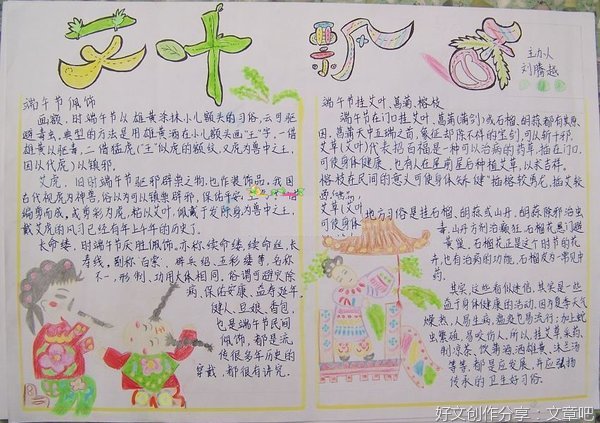 艾叶飘香
主办人
刘腾越
端午节佩饰
画额，时端午节以雄黄涂抹小儿额头的习俗，云可驱
避毒虫，典型的方法是用雄黄酒在小儿额头画"王"字，一借
雄黄以驱毒，二借猛虎("王"似虎的额纹，又虎为兽中之王，
因以代虎)以镇邪。
艾虎，旧时端午节驱邪辟祟之物，也作装饰品，我国
古代视虎为神兽，俗以为可以镇祟辟邪、保佑平安。
编剪而成，或剪彩为虎，粘以艾叶，佩戴于发际身
戴艾虎的风习已经有年上年的历史了。
长命缕，时端午节厌胜佩饰。亦称续命缕、续命丝、长
寿线，别称百索、辟兵绍、五彩缕等，名称
不一，形制、功用大体相同，俗谓可避灾除
病、保佑安康、益寿延年。
健人、豆娘、香包
也是端午节民间
佩饰，都是流
传很多年历史的
穿戴，都很有讲究。
端午节挂艾叶、菖蒲、榕枝
端午节在门口挂艾叶、菖蒲(蒲剑)或石榴、胡蒜都有其原
因。菖蒲天中五瑞之首，象征却除不祥的宝剑，可以斩千邪。
艾草(艾叶)代表招百福是一种可以治病的药草，插在门口，
可使身体健康，也有人在屋前屋后种植艾草，以求吉祥。
榕枝在民间的意义可使身体矫健"插榕较勇龙，插艾较
艾草(艾叶)
可使身体
地方习俗是挂石榴、胡蒜或山丹，胡蒜除邪治虫
毒；山丹方剂治癫狂，石榴花悬门避
黄巢。石榴花正是这个时节的花
卉，也有治病的功能，石榴皮为一常见中
药。
其实，这些看似迷信，其实是一些
益于身体健康的活动，因为夏季天气
燥热，人易生病，瘟疫也易流行；加上蛇
虫繁殖，易咬伤人，所以，挂艾草、采药、
制凉茶、饮蒲酒、洒雄黄、沐兰汤
等等，都是应发展、并应弘扬
传承的卫生好习俗。
好文创作分享：文章吧